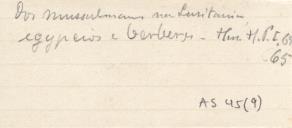 Dos mussulmanos na Lusitania
egypcios e berberes - Her. H. P. I, 69
65
AS 45(9)